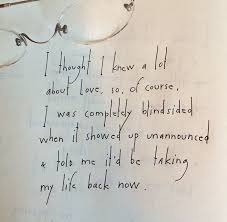 I thought I knew a lot
about love, so, of course,
I was completely blindsided
when it showed up unannounced
& told me it'd be taking
my life back now.